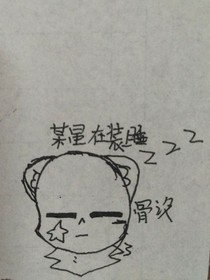 某星在装睡
z z z
骨汐